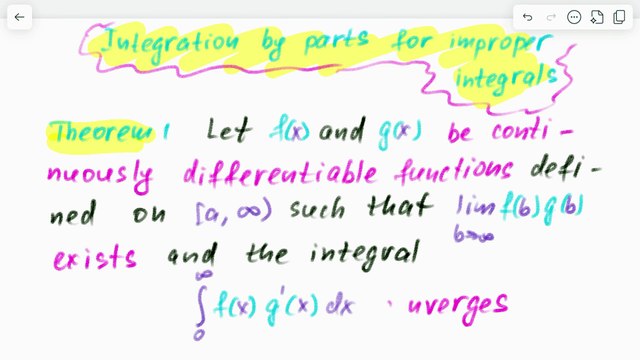 Integration by parts for improper
integrals
Theorem 1 Let f(x) and g(x) be conti-
nuously differentiable functions defi-
ned on [a, ∞) such that lim f(b)g(b)
b→∞
exists and the integral
∞
∫ f(x) g'(x) dx
0